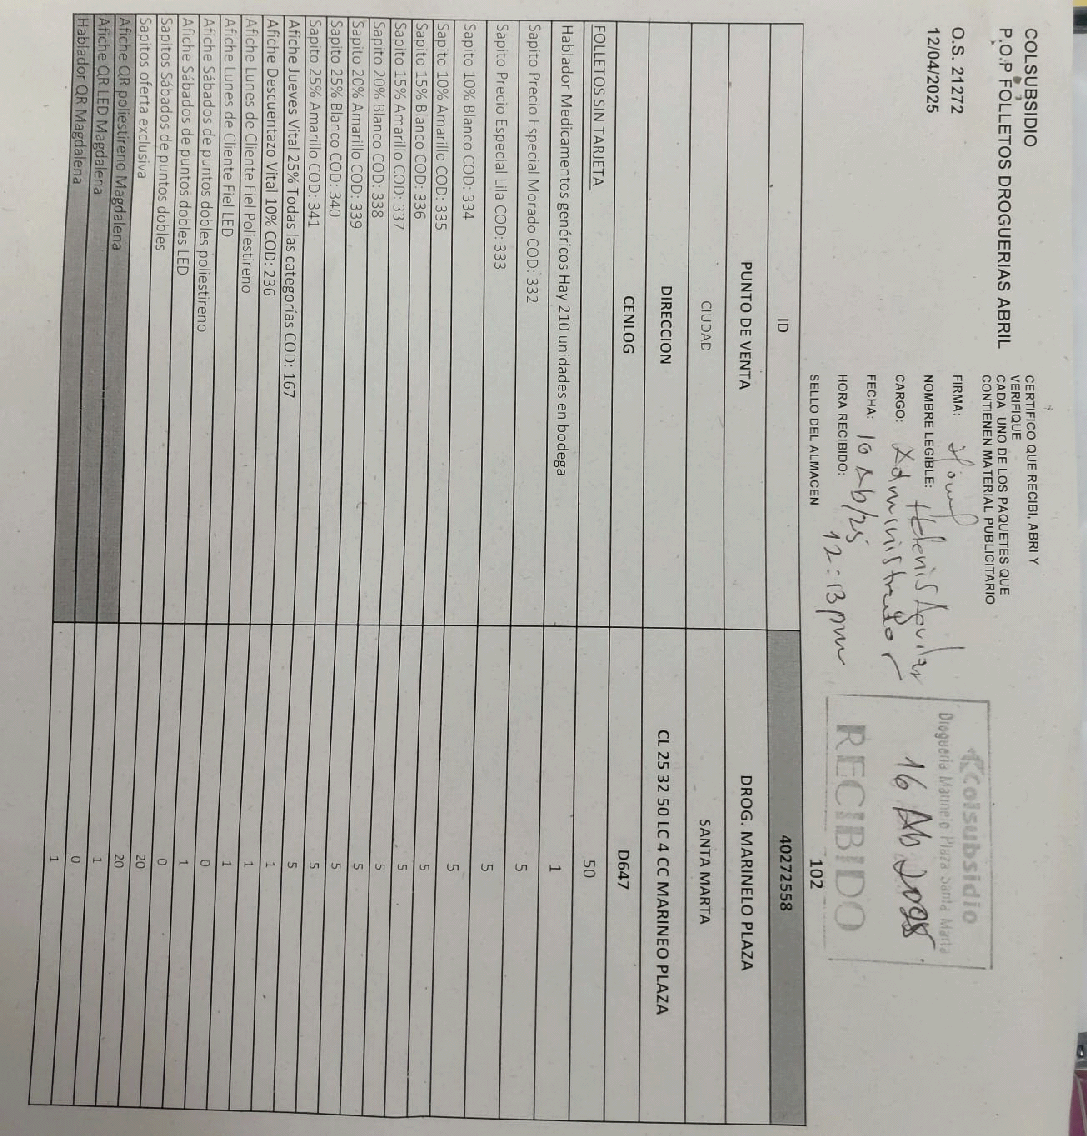 COLSUBSIDIO
P.O.P FOLLETOS DROGUERIAS ABRIL
O.S. 21272
12/04/2025
CERTIFICO QUE RECIBI, ABRI Y
VERIFIQUE
CADA UNO DE LOS PAQUETES QUE
CONTIENEN MATERIAL PUBLICITARIO
FIRMA:
NOMBRE LEGIBLE: Helenis Aguilar
CARGO: Administrador
FECHA: 16 Ab/25
HORA RECIBIDO: 12:13 pm
SELLO DEL ALMACEN
Colsubsidio
Droguería Marinelo Plaza Santa Marta
16 Ab 2025
RECIBIDO
102
ID 40272558
PUNTO DE VENTA DROG. MARINELO PLAZA
CIUDAD SANTA MARTA
DIRECCION CL 25 32 50 LC 4 CC MARINEO PLAZA
CENLOG D647
FOLLETOS SIN TARJETA 50
Hablador Medicamentos genéricos Hay 210 unidades en bodega 1
Sapito Precio Especial Morado COD: 332 5
Sapito Precio Especial Lila COD: 333 5
Sapito 10% Blanco COD: 334 5
Sapito 10% Amarillo COD: 335 5
Sapito 15% Blanco COD: 336 5
Sapito 15% Amarillo COD: 337 5
Sapito 20% Blanco COD: 338 5
Sapito 20% Amarillo COD: 339 5
Sapito 25% Blanco COD: 340 5
Sapito 25% Amarillo COD: 341 5
Afiche Jueves Vital 25% Todas las categorías COD: 167 5
Afiche Descuentazo Vital 10% COD: 236 1
Afiche Lunes de Cliente Fiel Poliestireno 1
Afiche Lunes de Cliente Fiel LED 1
Afiche Sábados de puntos dobles poliestireno 0
Afiche Sábados de puntos dobles LED 1
Sapitos Sábados de puntos dobles 0
Sapitos oferta exclusiva 20
Afiche QR poliestireno Magdalena 20
Afiche QR LED Magdalena 1
Hablador QR Magdalena 0
1